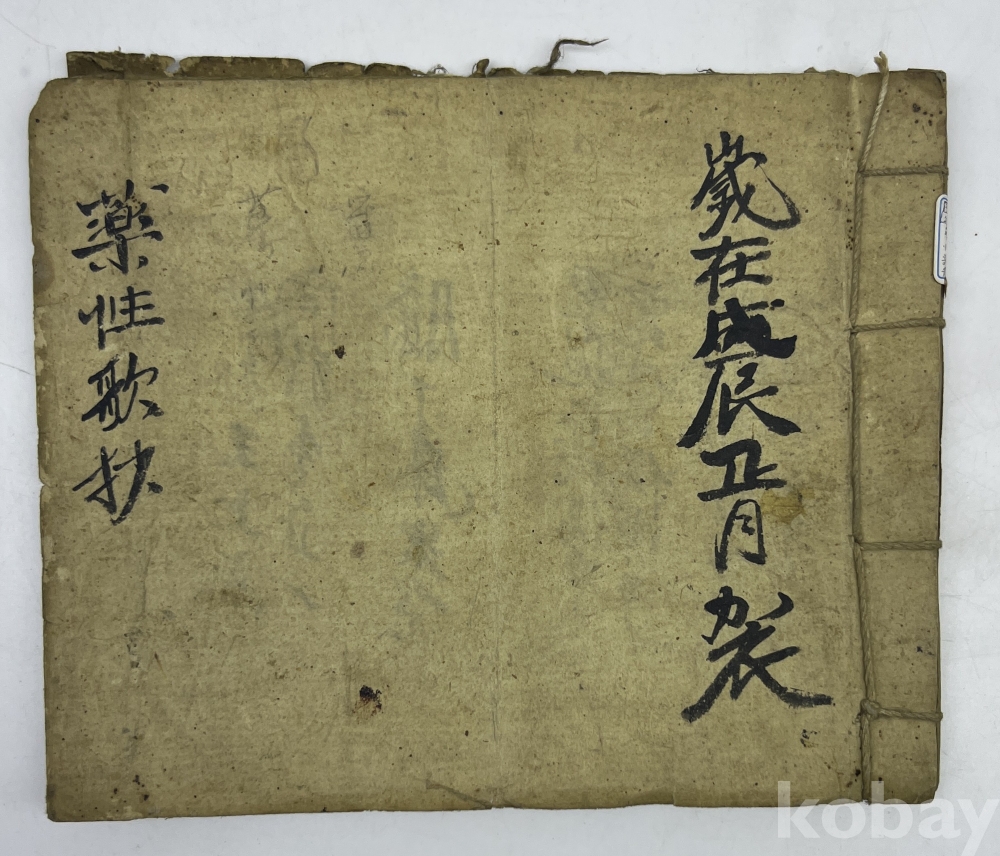 歲在戊辰正月 袈
藥性歌抄
kobay